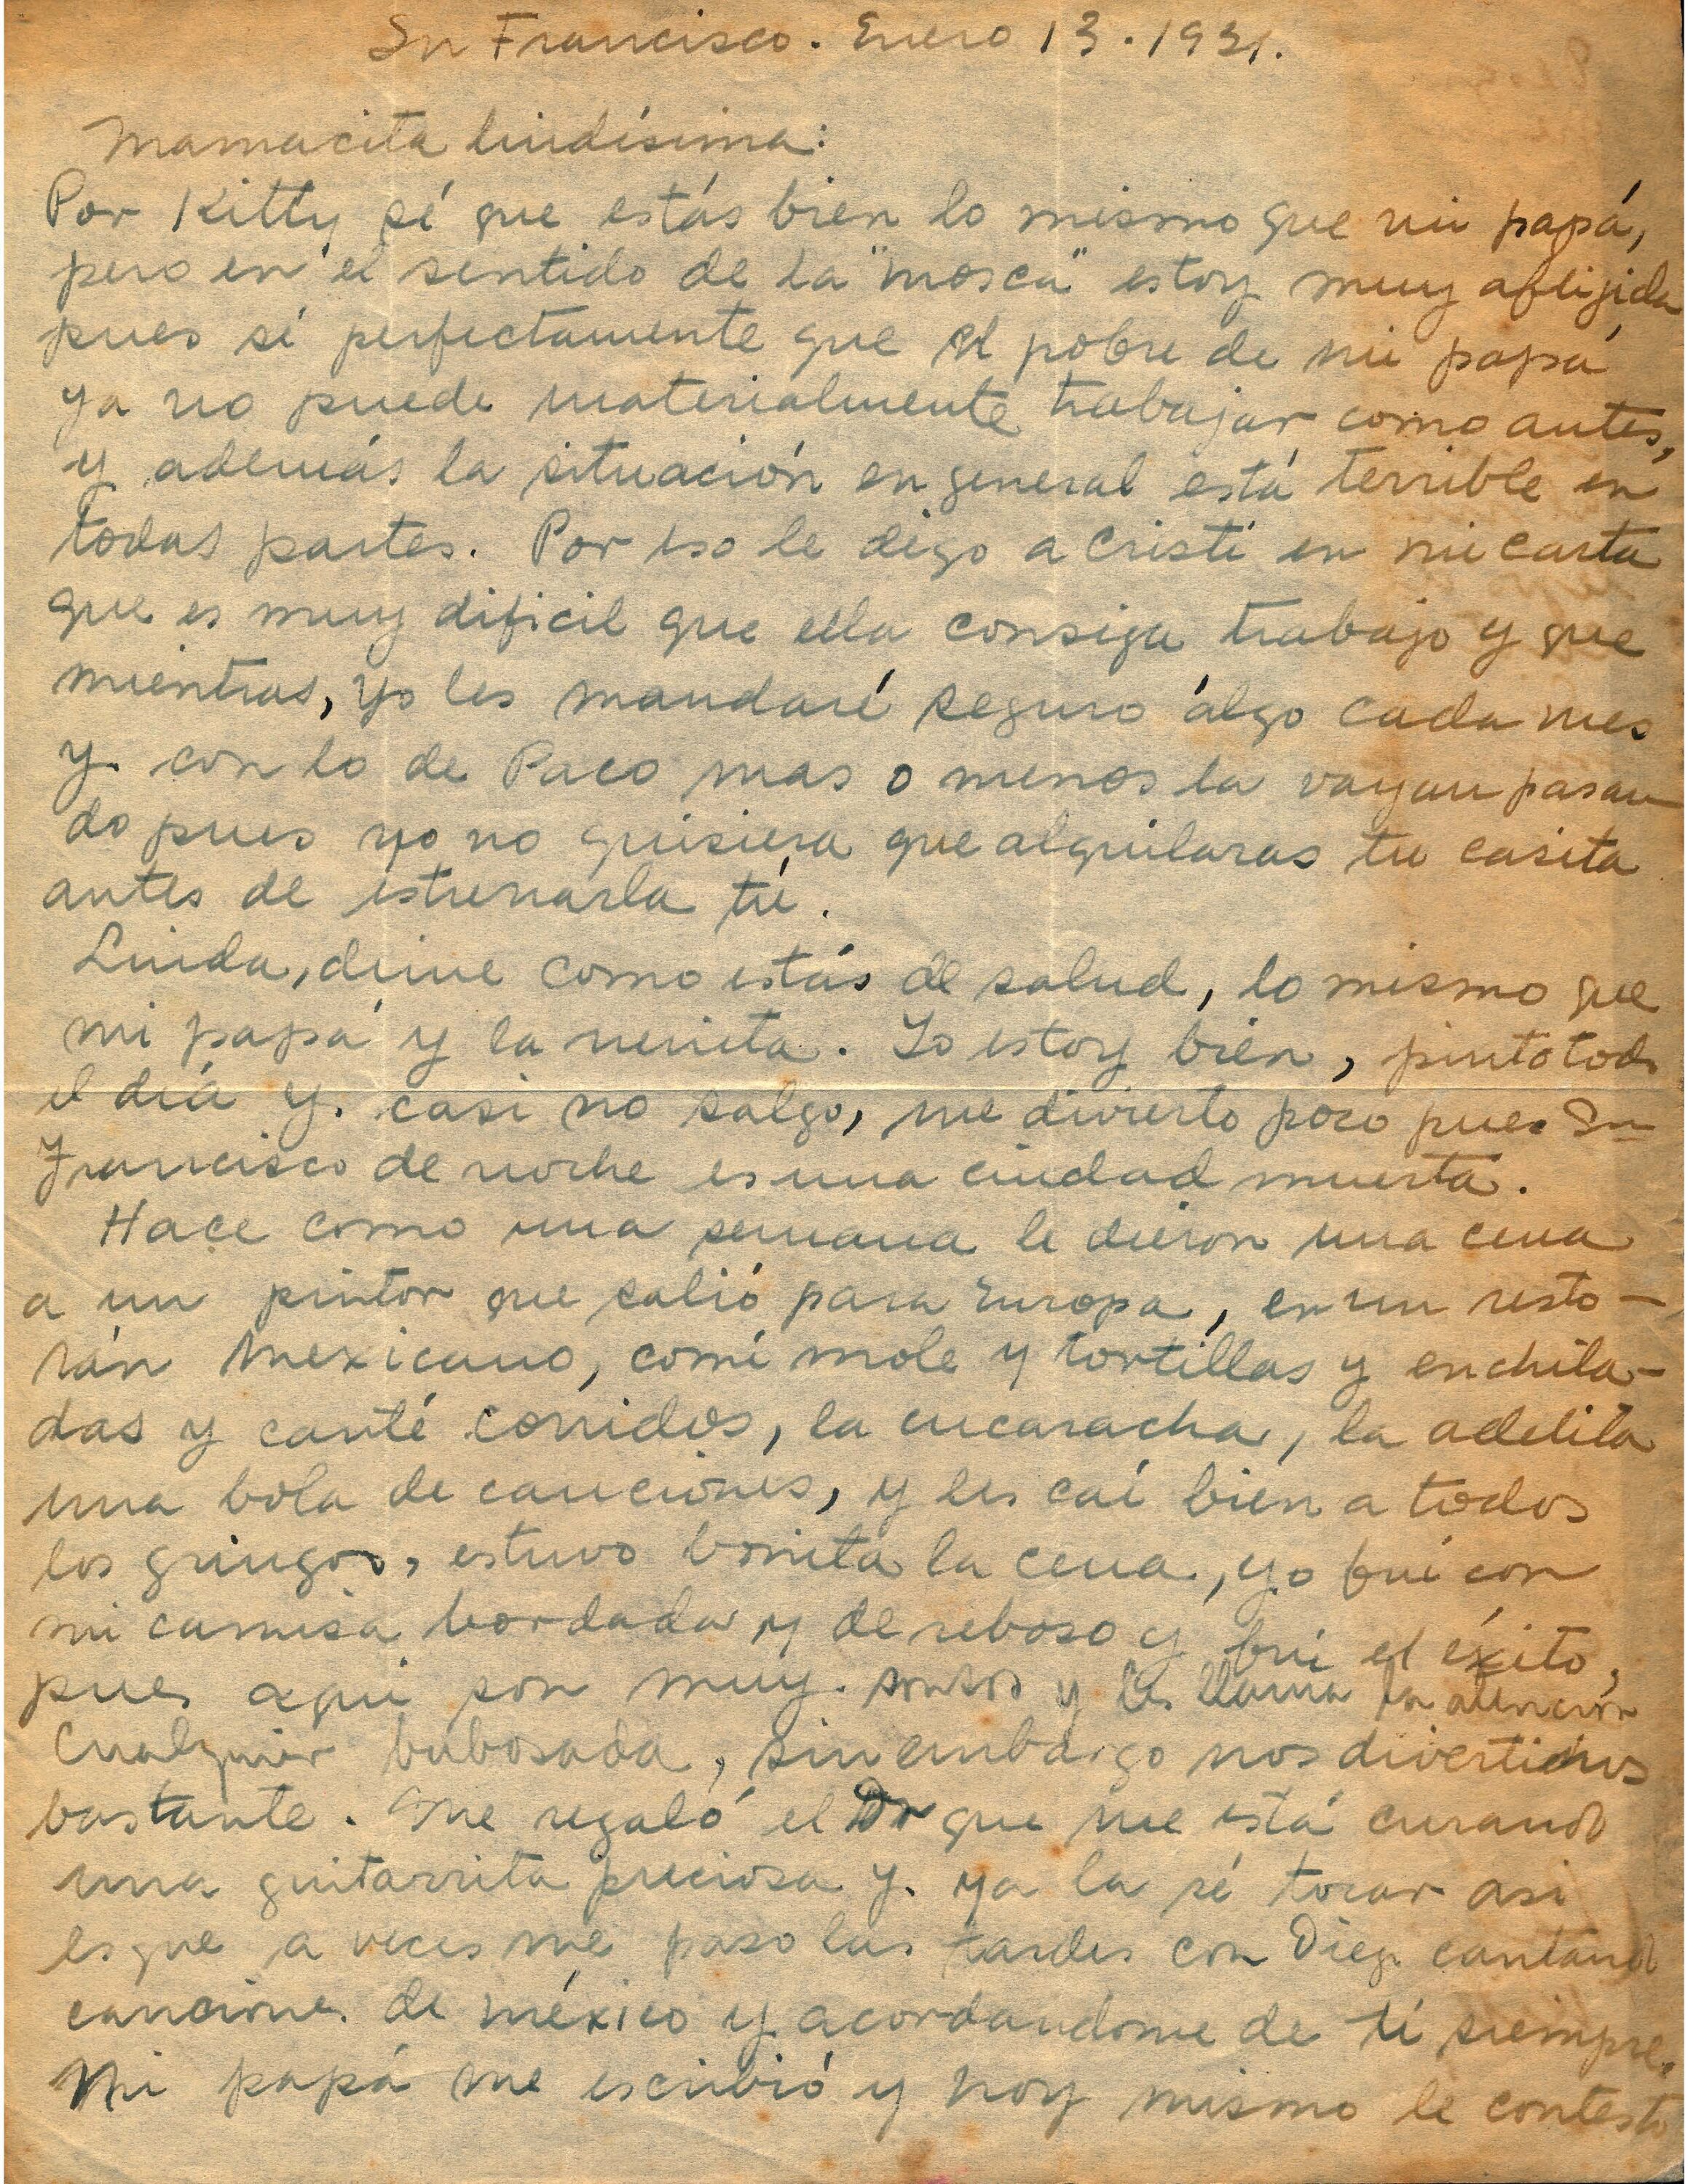 Sn Francisco. Enero 13. 1931.
Mamacita lindísima:
Por Kitty sé que estás bien lo mismo que mi papá,
pero en el sentido de la "mosca" estoy muy aflijida
pues sé perfectamente que el pobre de mi papá
ya no puede materialmente trabajar como antes,
y además la situación en general está terrible en
todas partes. Por eso le digo a Cristi en mi carta
que es muy dificil que ella consiga trabajo y que
mientras, yo les mandaré seguro álgo cada mes
y. con lo de Paco mas o menos la vayan pasan
do pues yo no quisiera que alquilaras tu casita
antes de estrenarla tú.
Linda, dime como estás de salud, lo mismo que
mi papá y la nenita. Yo estoy bien, pinto todo
el día y. casi no salgo, me divierto poco pues Sn
Francisco de noche es una ciudad muerta.
Hace como una semana le dieron una cena
a un pintor que salió para Europa, en un resto-
rán Mexicano, comí mole y tortillas y enchila-
das y canté corridos, la cucaracha, la adelita
una bola de canciones, y les caí bien a todos
los gringos, estuvo bonita la cena, yo fuí con
mi camisa bordada y de reboso y fuí el éxito,
pues aquí son muy. sonsos y les llama la atención
Cualquier babosada, sin embargo nos divertimos
bastante. Me regaló el Dr que me está curando
una guitarrita preciosa y. ya la sé tocar asi
es que a veces me paso las tardes con Diego cantando
canciones de méxico y acordandome de tí siempre.
Mi papá me escribió y hoy mismo le contesto